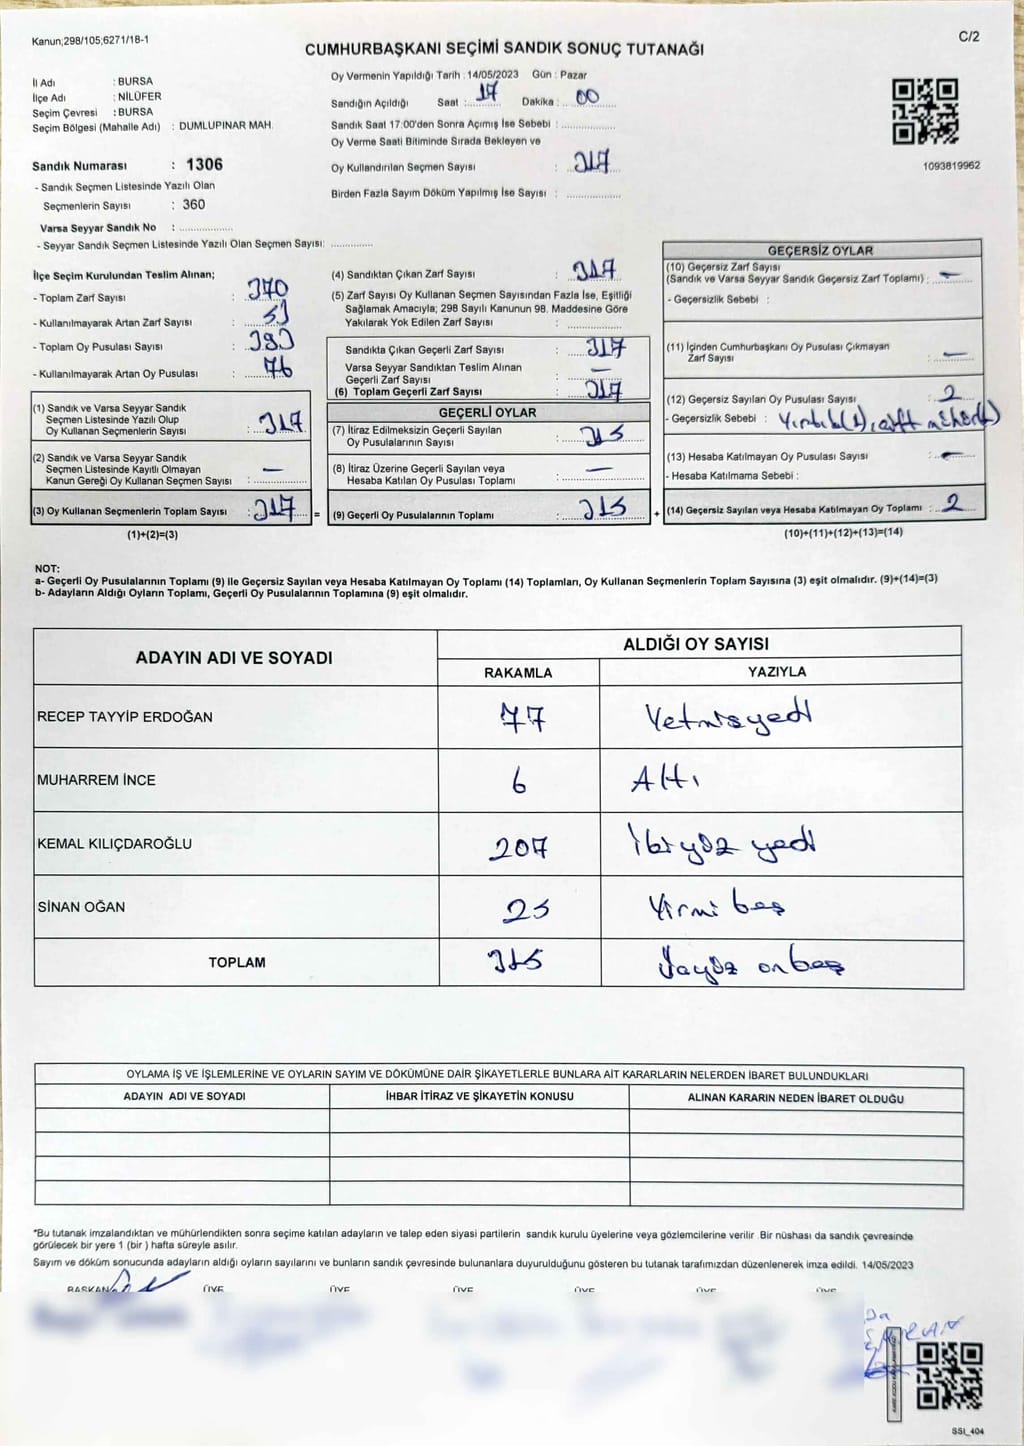 Kanun;298/105;6271/18-1
C/2
CUMHURBAŞKANI SEÇİMİ SANDIK SONUÇ TUTANAĞI
İl Adı : BURSA
İlçe Adı : NİLÜFER
Seçim Çevresi : BURSA
Seçim Bölgesi (Mahalle Adı) : DUMLUPINAR MAH.
Sandık Numarası : 1306
- Sandık Seçmen Listesinde Yazılı Olan
Seçmenlerin Sayısı : 360
Varsa Seyyar Sandık No : ..................
- Seyyar Sandık Seçmen Listesinde Yazılı Olan Seçmen Sayısı: ..............
Oy Vermenin Yapıldığı Tarih : 14/05/2023 Gün : Pazar
Sandığın Açıldığı Saat : 17 Dakika : 00
Sandık Saat 17:00'den Sonra Açımış İse Sebebi : ..................
Oy Verme Saati Bitiminde Sırada Bekleyen ve
Oy Kullandırılan Seçmen Sayısı : 317
Birden Fazla Sayım Döküm Yapılmış İse Sayısı : ..................
1093819962
İlçe Seçim Kurulundan Teslim Alınan;
- Toplam Zarf Sayısı : 370
- Kullanılmayarak Artan Zarf Sayısı : 53
- Toplam Oy Pusulası Sayısı : 393
- Kullanılmayarak Artan Oy Pusulası : 76
(1) Sandık ve Varsa Seyyar Sandık
Seçmen Listesinde Yazılı Olup
Oy Kullanan Seçmenlerin Sayısı : 317
(2) Sandık ve Varsa Seyyar Sandık
Seçmen Listesinde Kayıtlı Olmayan
Kanun Gereği Oy Kullanan Seçmen Sayısı : —
(3) Oy Kullanan Seçmenlerin Toplam Sayısı : 317 =
(1)+(2)=(3)
(4) Sandıktan Çıkan Zarf Sayısı : 317
(5) Zarf Sayısı Oy Kullanan Seçmen Sayısından Fazla İse, Eşitliği
Sağlamak Amacıyla; 298 Sayılı Kanunun 98. Maddesine Göre
Yakılarak Yok Edilen Zarf Sayısı : ..................
Sandıkta Çıkan Geçerli Zarf Sayısı : 317
Varsa Seyyar Sandıktan Teslim Alınan
Geçerli Zarf Sayısı : —
(6) Toplam Geçerli Zarf Sayısı : 317
GEÇERLİ OYLAR
(7) İtiraz Edilmeksizin Geçerli Sayılan
Oy Pusulalarının Sayısı : 315
(8) İtiraz Üzerine Geçerli Sayılan veya
Hesaba Katılan Oy Pusulası Toplamı : —
(9) Geçerli Oy Pusulalarının Toplamı : 315 +
GEÇERSİZ OYLAR
(10) Geçersiz Zarf Sayısı
(Sandık ve Varsa Seyyar Sandık Geçersiz Zarf Toplamı) : —
- Geçersizlik Sebebi :
(11) İçinden Cumhurbaşkanı Oy Pusulası Çıkmayan
Zarf Sayısı : —
(12) Geçersiz Sayılan Oy Pusulası Sayısı : 2
- Geçersizlik Sebebi : Yırtık(1), çift mühür(1)
(13) Hesaba Katılmayan Oy Pusulası Sayısı : —
- Hesaba Katılmama Sebebi :
(14) Geçersiz Sayılan veya Hesaba Katılmayan Oy Toplamı : 2
(10)+(11)+(12)+(13)=(14)
NOT:
a- Geçerli Oy Pusulalarının Toplamı (9) ile Geçersiz Sayılan veya Hesaba Katılmayan Oy Toplamı (14) Toplamları, Oy Kullanan Seçmenlerin Toplam Sayısına (3) eşit olmalıdır. (9)+(14)=(3)
b- Adayların Aldığı Oyların Toplamı, Geçerli Oy Pusulalarının Toplamına (9) eşit olmalıdır.
ADAYIN ADI VE SOYADI ALDIĞI OY SAYISI
RAKAMLA YAZIYLA
RECEP TAYYİP ERDOĞAN 77 Yetmişyedi
MUHARREM İNCE 6 Altı
KEMAL KILIÇDAROĞLU 207 İkiyüz yedi
SİNAN OĞAN 25 Yirmi beş
TOPLAM 315 Üçyüz onbeş
OYLAMA İŞ VE İŞLEMLERİNE VE OYLARIN SAYIM VE DÖKÜMÜNE DAİR ŞİKAYETLERLE BUNLARA AİT KARARLARIN NELERDEN İBARET BULUNDUKLARI
ADAYIN ADI VE SOYADI İHBAR İTİRAZ VE ŞİKAYETİN KONUSU ALINAN KARARIN NEDEN İBARET OLDUĞU
*Bu tutanak imzalandıktan ve mühürlendikten sonra seçime katılan adayların ve talep eden siyasi partilerin sandık kurulu üyelerine veya gözlemcilerine verilir. Bir nüshası da sandık çevresinde
görülecek bir yere 1 (bir ) hafta süreyle asılır.
Sayım ve döküm sonucunda adayların aldığı oyların sayılarını ve bunların sandık çevresinde bulunanlara duyurulduğunu gösteren bu tutanak tarafımızdan düzenlenerek imza edildi. 14/05/2023
BAŞKAN ÜYE ÜYE ÜYE ÜYE ÜYE ÜYE
SSI_404